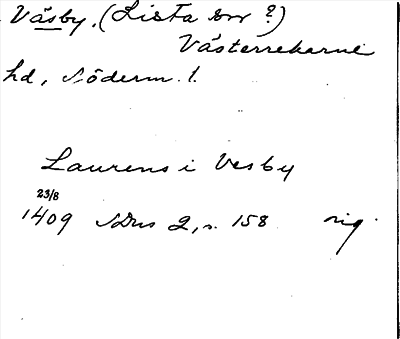 Väsby, (Lista sn ?)
Västerrekarne
hd, Söderm. l.
Laurens i Vesby
23/8
1409 SDns 2, s. 158 orig.